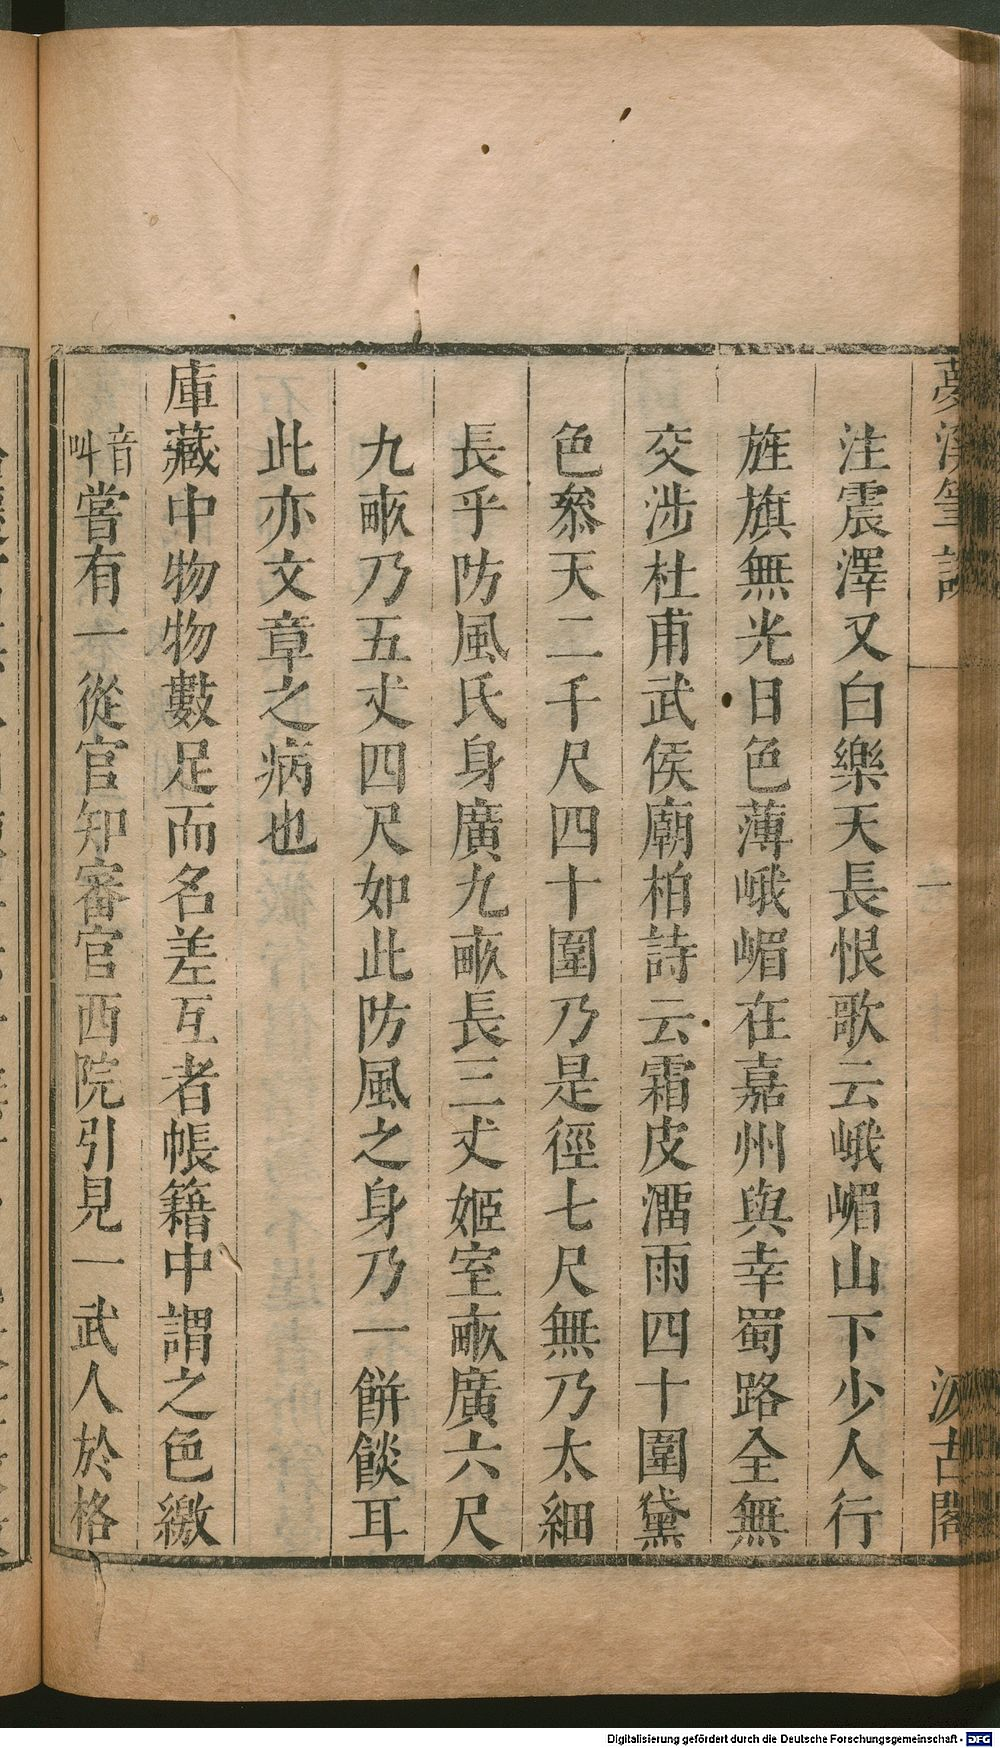 夢溪筆談
一
汲古閣
注震澤又白樂天長恨歌云峨嵋山下少人行
旌旗無光日色薄峨嵋在嘉州與幸蜀路全無
交涉杜甫武侯廟柏詩云霜皮溜雨四十圍黛
色叅天二千尺四十圍乃是徑七尺無乃太細
長乎防風氏身廣九畝長三丈姬室畝廣六尺
九畝乃五丈四尺如此防風之身乃一餅餤耳
此亦文章之病也
庫藏中物物數足而名差互者帳籍中謂之色繳
音叫嘗有一從官知審官西院引見一武人於格
Digitalisierung gefördert durch die Deutsche Forschungsgemeinschaft - DFG